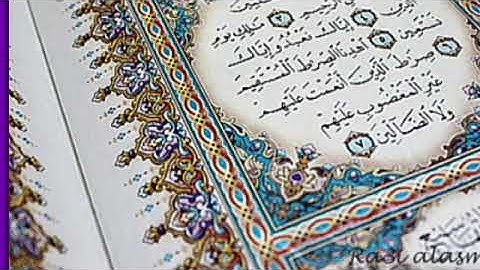 الرَّحِيمِ ﴿٣﴾ مَٰلِكِ يَوْمِ
الدِّينِ ﴿٤﴾ إِيَّاكَ نَعْبُدُ وَإِيَّاكَ
نَسْتَعِينُ ﴿٥﴾ اهْدِنَا الصِّرَٰطَ الْمُسْتَقِيمَ
﴿٦﴾ صِرَٰطَ الَّذِينَ أَنْعَمْتَ عَلَيْهِمْ
غَيْرِ الْمَغْضُوبِ عَلَيْهِمْ
وَلَا الضَّالِّينَ ﴿٧﴾
Ra3i alasm